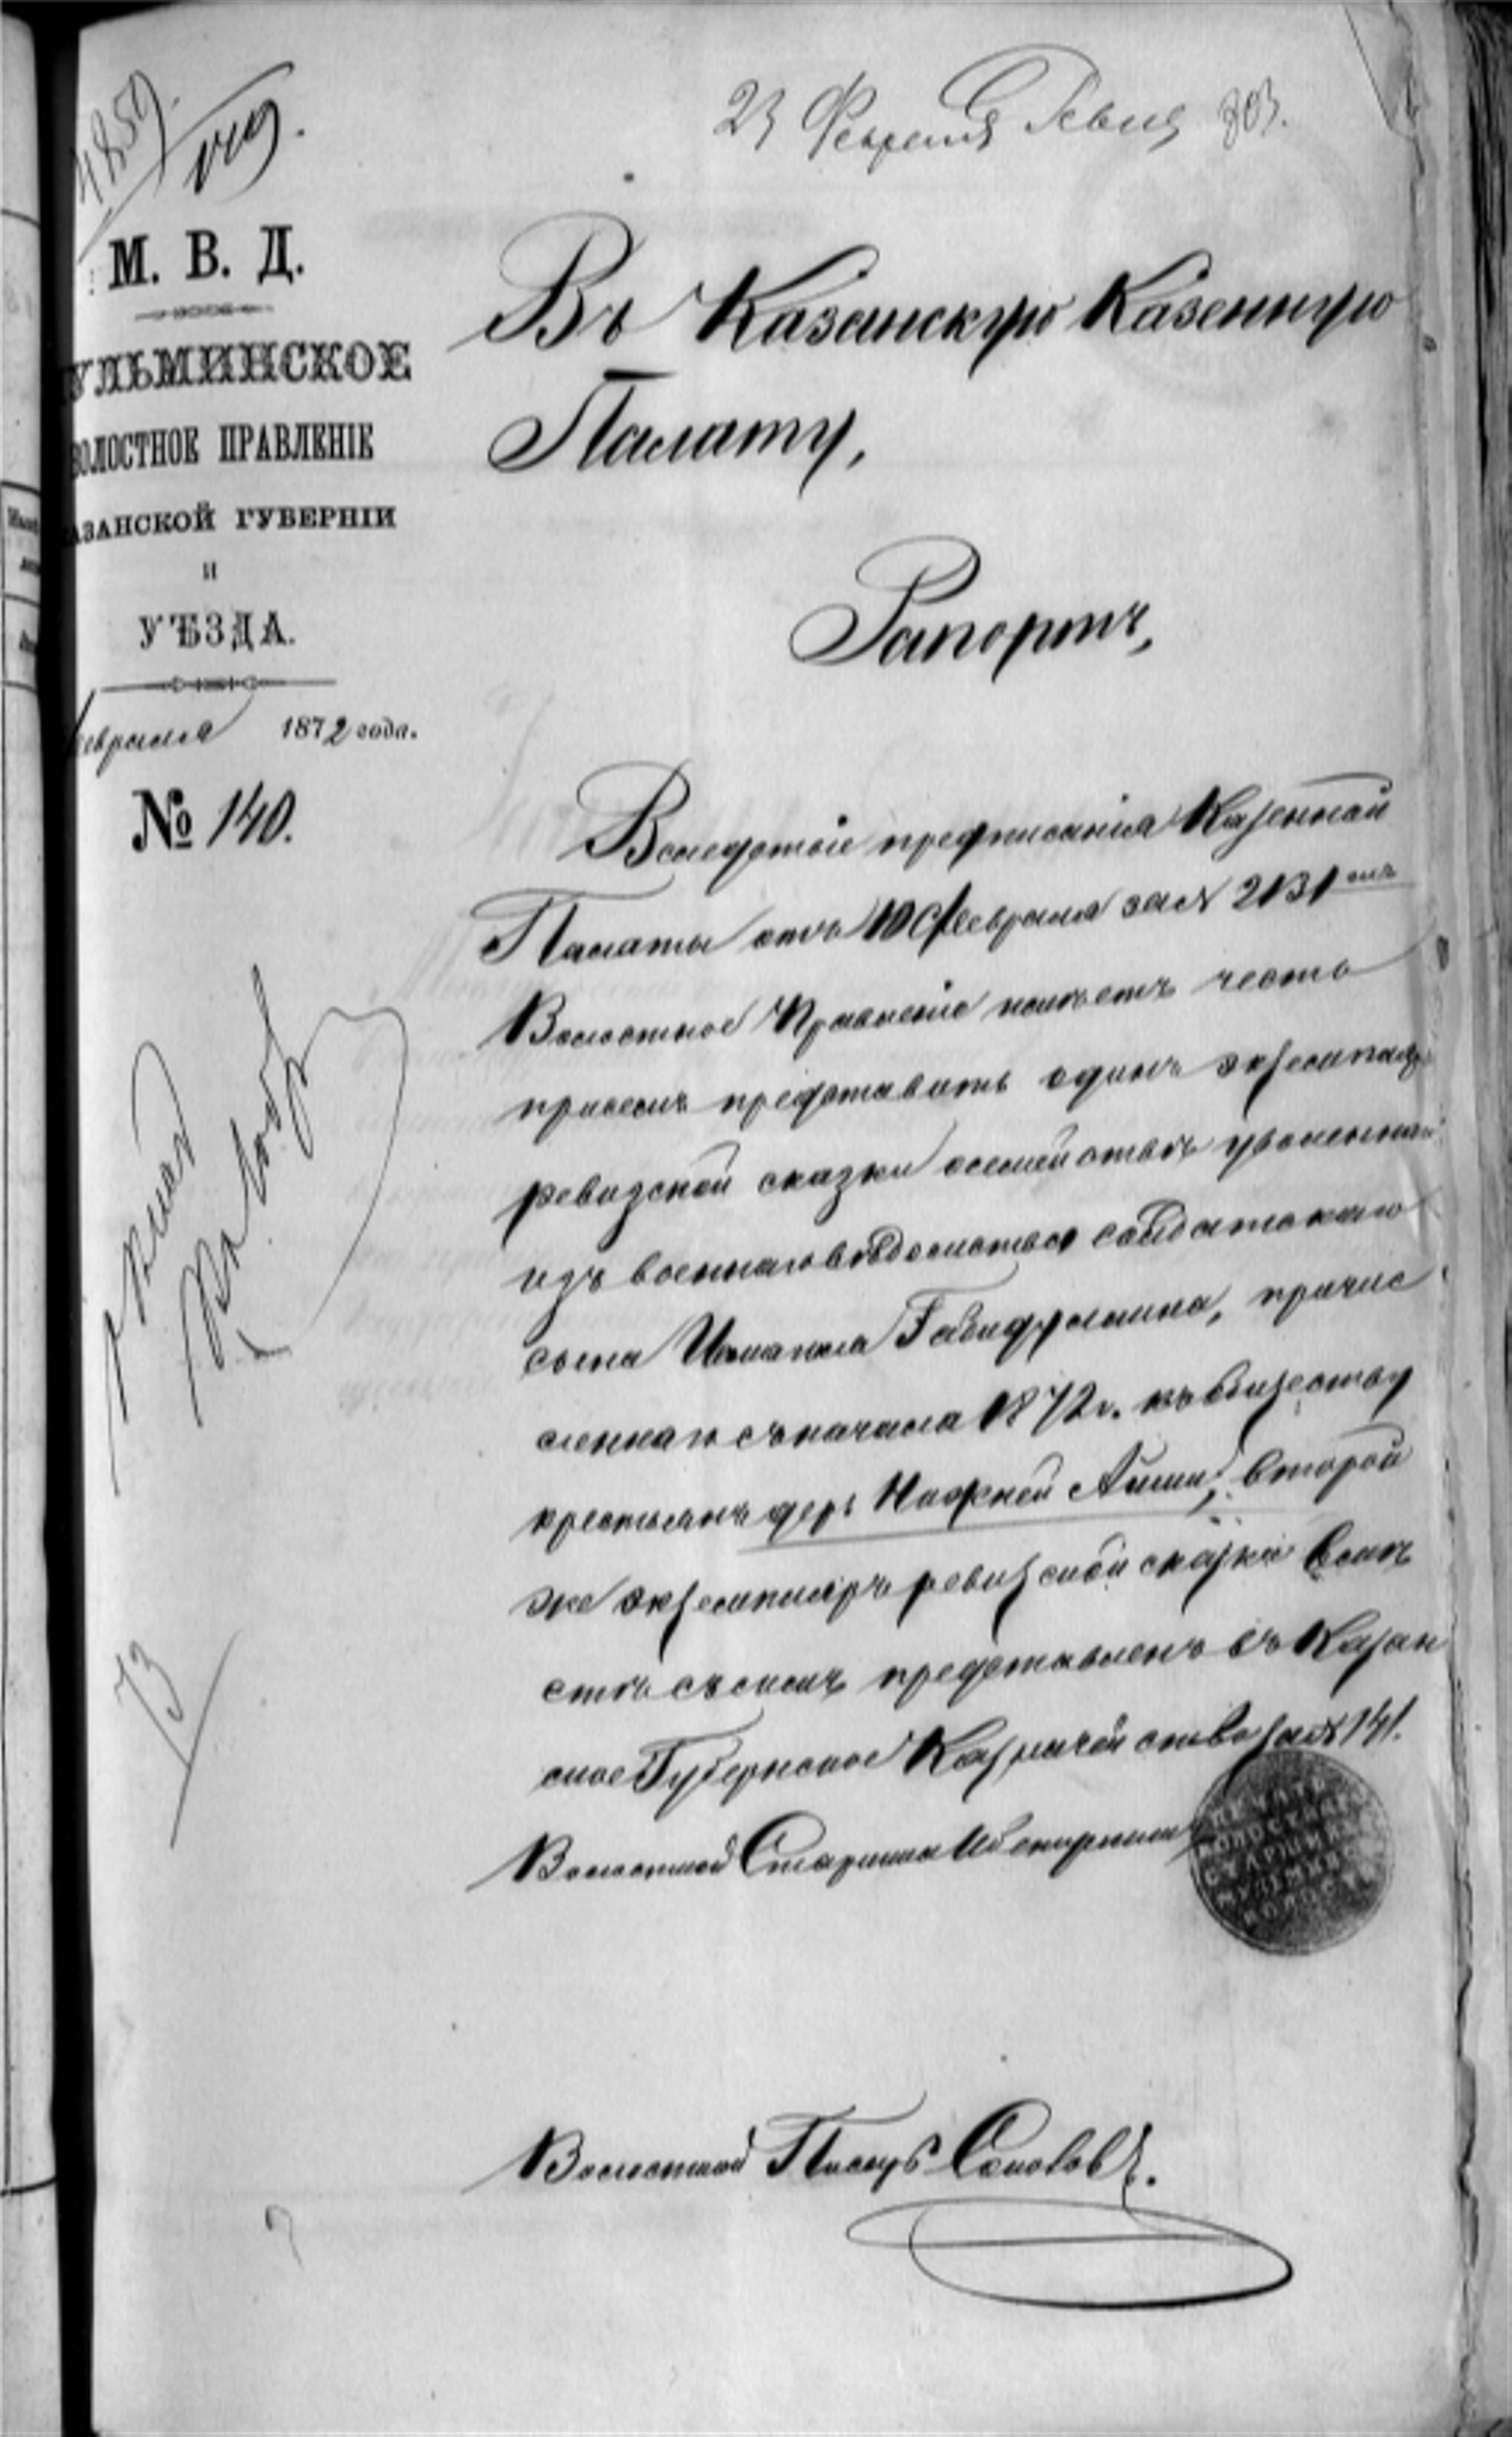 4859.
23 Февраля Ревиз 803.
М. В. Д.
УЛЬМИНСКОЕ
ВОЛОСТНОЕ ПРАВЛЕНІЕ
АЗАНСКОЙ ГУБЕРНІИ
И
УѢЗДА.
евраля 1872 года.
№ 140.
Въ Казанскую Казенную
Палату,
Рапортъ,
Вследствіе предписанія Казенной
Палаты отъ 10 Февраля за № 2131
Волостное Правленіе имѣетъ честь
присемъ представить одинъ экземпляр
ревизской сказки о семействѣ уволеннаго
изъ военнаго вѣдомства солдатскаго
сына Габидуллина, причис
леннаго съ начала 1872 г. къ обществу
крестьянъ дер. Нижней Аиши, второй
же экземпляръ ревизской сказки вмѣ
стѣ съ симъ представленъ въ Казан
ское Губернское Казначейство за № 141.
Волостной Старшина
13
Волостной Писарь